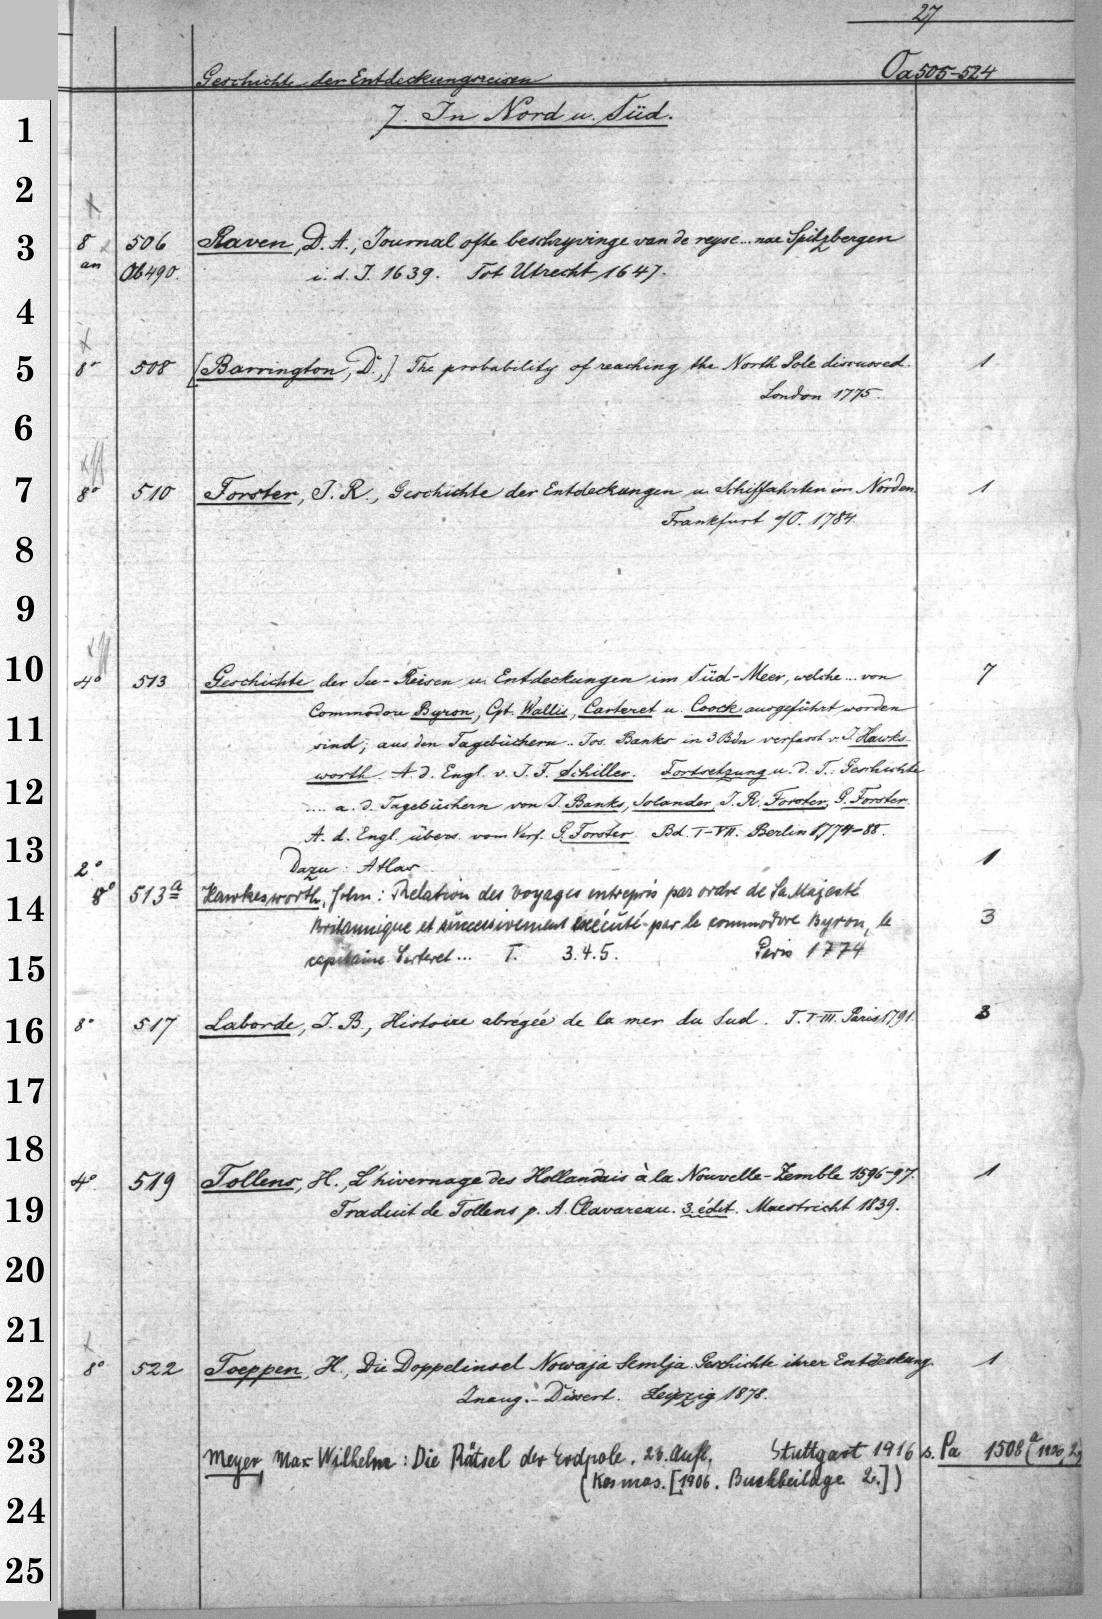 27
Geschichte der Entdeckungsreisen Oa 505-524
7. In Nord u. Süd.
1
2
3
4
5
6
7
8
9
10
11
12
13
14
15
16
17
18
19
20
21
22
23
24
25
8 506 Raven, D. A., Journal ofte beschryvinge van de reyse... nae Spitzbergen
an Ob 490. i. d. J. 1639. Tot Utrecht, 1647.
8° 508 [Barrington, D.,] The probability of reaching the North Pole discussed. 1
London 1775.
8° 510 Forster, J. R., Geschichte der Entdeckungen u. Schiffahrten im Norden. 1
Frankfurt a/O. 1784.
4° 513 Geschichte der See-Reisen u. Entdeckungen im Süd-Meer, welche... von 7
Commodore Byron, Cpt. Wallis, Carteret u. Coock ausgeführt worden
sind; aus den Tagebüchern .. Jos. Banks in 3 Bdn verfasst v. J. Hawks-
worth. A. d. Engl. v. J. F. Schiller. Fortsetzung u. d. T.: Geschichte
.... a. d. Tagebüchern von J. Banks, Solander, J. R. Forster, G. Forster.
A. d. Engl. übers. vom Verf. G. Forster. Bd. I-VII. Berlin 1774-88.
2° Dazu: Atlas 1
8° 513a Hawkesworth, John: Relation des voyages entrepris par ordre de Sa Majesté
Britannique et successivement exécuté par le commodore Byron, le 3
capitaine Carteret... T. 3.4.5. Paris 1774
8° 517 Laborde, J. B., Histoire abrégée de la mer du Sud. T. I-III. Paris 1791. 3
4° 519 Tollens, H., L'hivernage des Hollandais à la Nouvelle-Zemble 1596-97. 1
Traduit de Tollens p. A. Clavareau. 3 édit. Maestricht 1839.
8° 522 Toeppen, H., Die Doppelinsel Nowaja Semlja. Geschichte ihrer Entdeckung. 1
Inaug.-Dissert. Leipzig 1878.
Meyer, Max Wilhelm: Die Rätsel der Erdpole. 28. Aufl. Stuttgart 1916 s. Pa 1508a (1906, 2)
(Kosmos. [1906. Buchbeilage 2.])